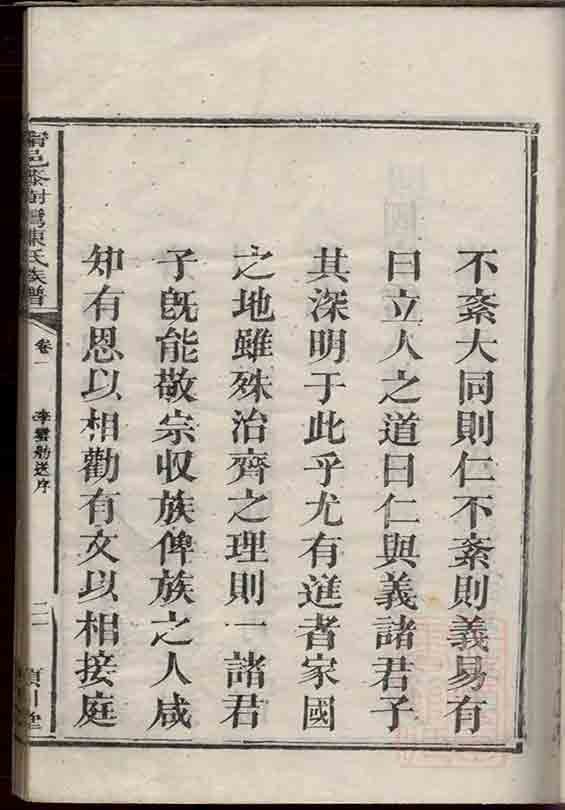 不紊大同則仁不紊則義易有
曰立人之道曰仁與義諸君子
其深明于此乎尤有進者家國
之地雖殊治齊之理則一諸君
子旣能敬宗収族俾族之人咸
知有恩以相勸有文以相接庭
陳氏族譜
卷一
送序
二
川堂